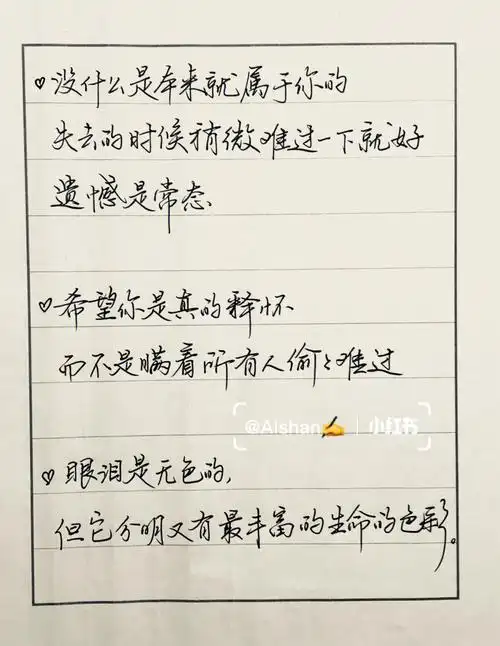 ♡没什么是本来就属于你的
失去的时候稍微难过一下就好
遗憾是常态
♡希望你是真的释怀
而不是瞒着所有人偷々难过
@Alshan✍️ | 小红书
♡眼泪是无色的,
但它分明又有最丰富的生命的色彩。